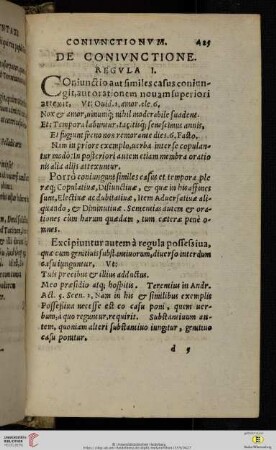 CONIVNCTIONVM. 425
DE CONIVNCTIONE.
REGVLA I.
COniunctio aut similes casus coniun-
git, aut orationem nouam superiori
attexit. Vt: Ouid. 1. amor. ele. 6.
Nox & amor, uinumq́; nihil moderabile suadent.
Et: Tempora labuntur, tacitisq́; senescimus annis,
Et fugiunt freno non remorante dies. 6. Fasto.
Nam in priore exemplo, uerba inter se copulan-
tur modò: In posteriori autem etiam membra oratio
nis alia alijs attexuntur.
Porrò coniungunt similes casus et tempora ple
ræq́; Copulatiuæ, Disiunctiuæ, & quæ in his affines
sunt, Electiuæ ac dubitatiuæ, Item Aduersatiuæ ali-
quando, & Diminutiuæ. Sententias autem & ora-
tiones cùm harum quædam, tum cæteræ penè o-
mnes.
Excipiuntur autem à regula possessiua,
quæ cum genitiuis substantiuorum, diuerso interdum
casu iunguntur. Vt:
Tuis precibus & illius adductus.
Meo præsidio atq́; hospitis. Terentius in Andr.
Act. 5. Scen. 2. Nam in his & similibus exemplis
Possessiua necesse est eo casu poni, quem uer-
bum, à quo reguntur, requirit. Substantiuum au-
tem, quoniam alteri substantiuo iungitur, genitiuo
casu ponitur.
d 5
UNIVERSITÄTS-
BIBLIOTHEK
HEIDELBERG
© Universitätsbibliothek Heidelberg